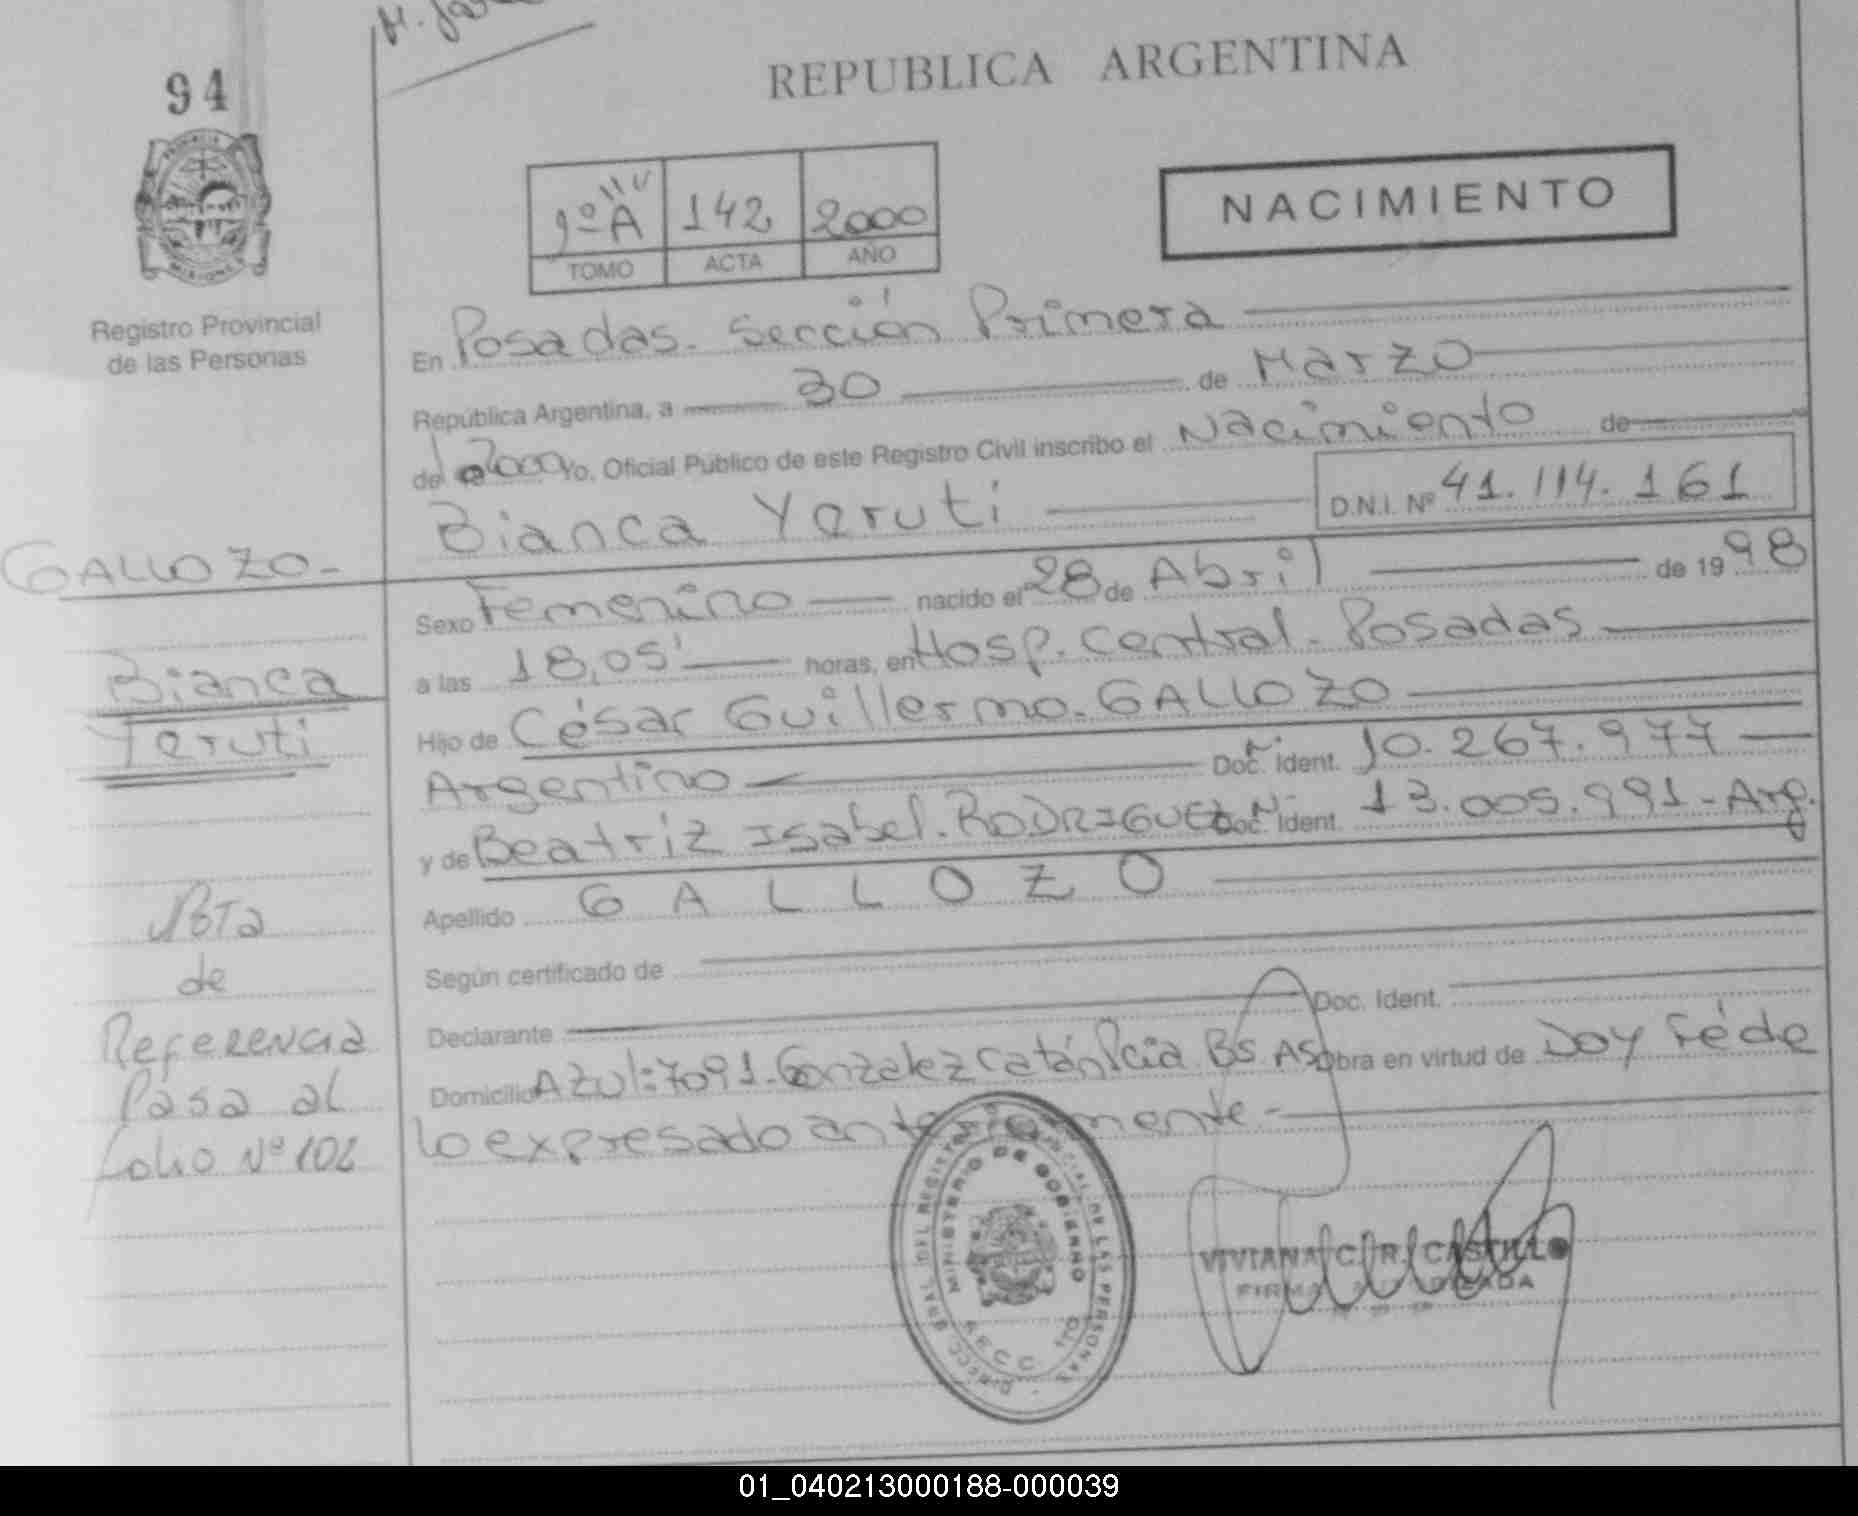 94
REPUBLICA ARGENTINA
PROVINCIA
MISIONES
Registro Provincial
de las Personas
1º A 142 2000
TOMO ACTA AÑO
NACIMIENTO
En Posadas. Sección Primera
República Argentina, a 30 de Marzo
del 2000 Yo, Oficial Público de este Registro Civil inscribo el Nacimiento de
Bianca Yeruti D.N.I. Nº 41.114.161
GALLOZO-
Bianca
Yeruti
Sexo Femenino nacido el 28 de Abril de 1998
a las 18,05' horas, en Hosp. Central - Posadas
Hijo de César Guillermo. GALLOZO
Argentino Doc. Ident. 10.267.977
y de Beatriz Isabel. RODRIGUEZ Doc. Ident. 13.005.991 - Arg.
Apellido GALLOZO
Según certificado de
Declarante Doc. Ident.
Domicilio AZUL: 7091. Gonzalez Catán Pcia. Bs. As Obra en virtud de Doy Fé de
lo expresado anteriormente -
Nota
de
Referencia
Pasa al
folio Nº 102
MINISTERIO DE GOBIERNO
VIVIANA C. R. CASTILLO
01_040213000188-000039